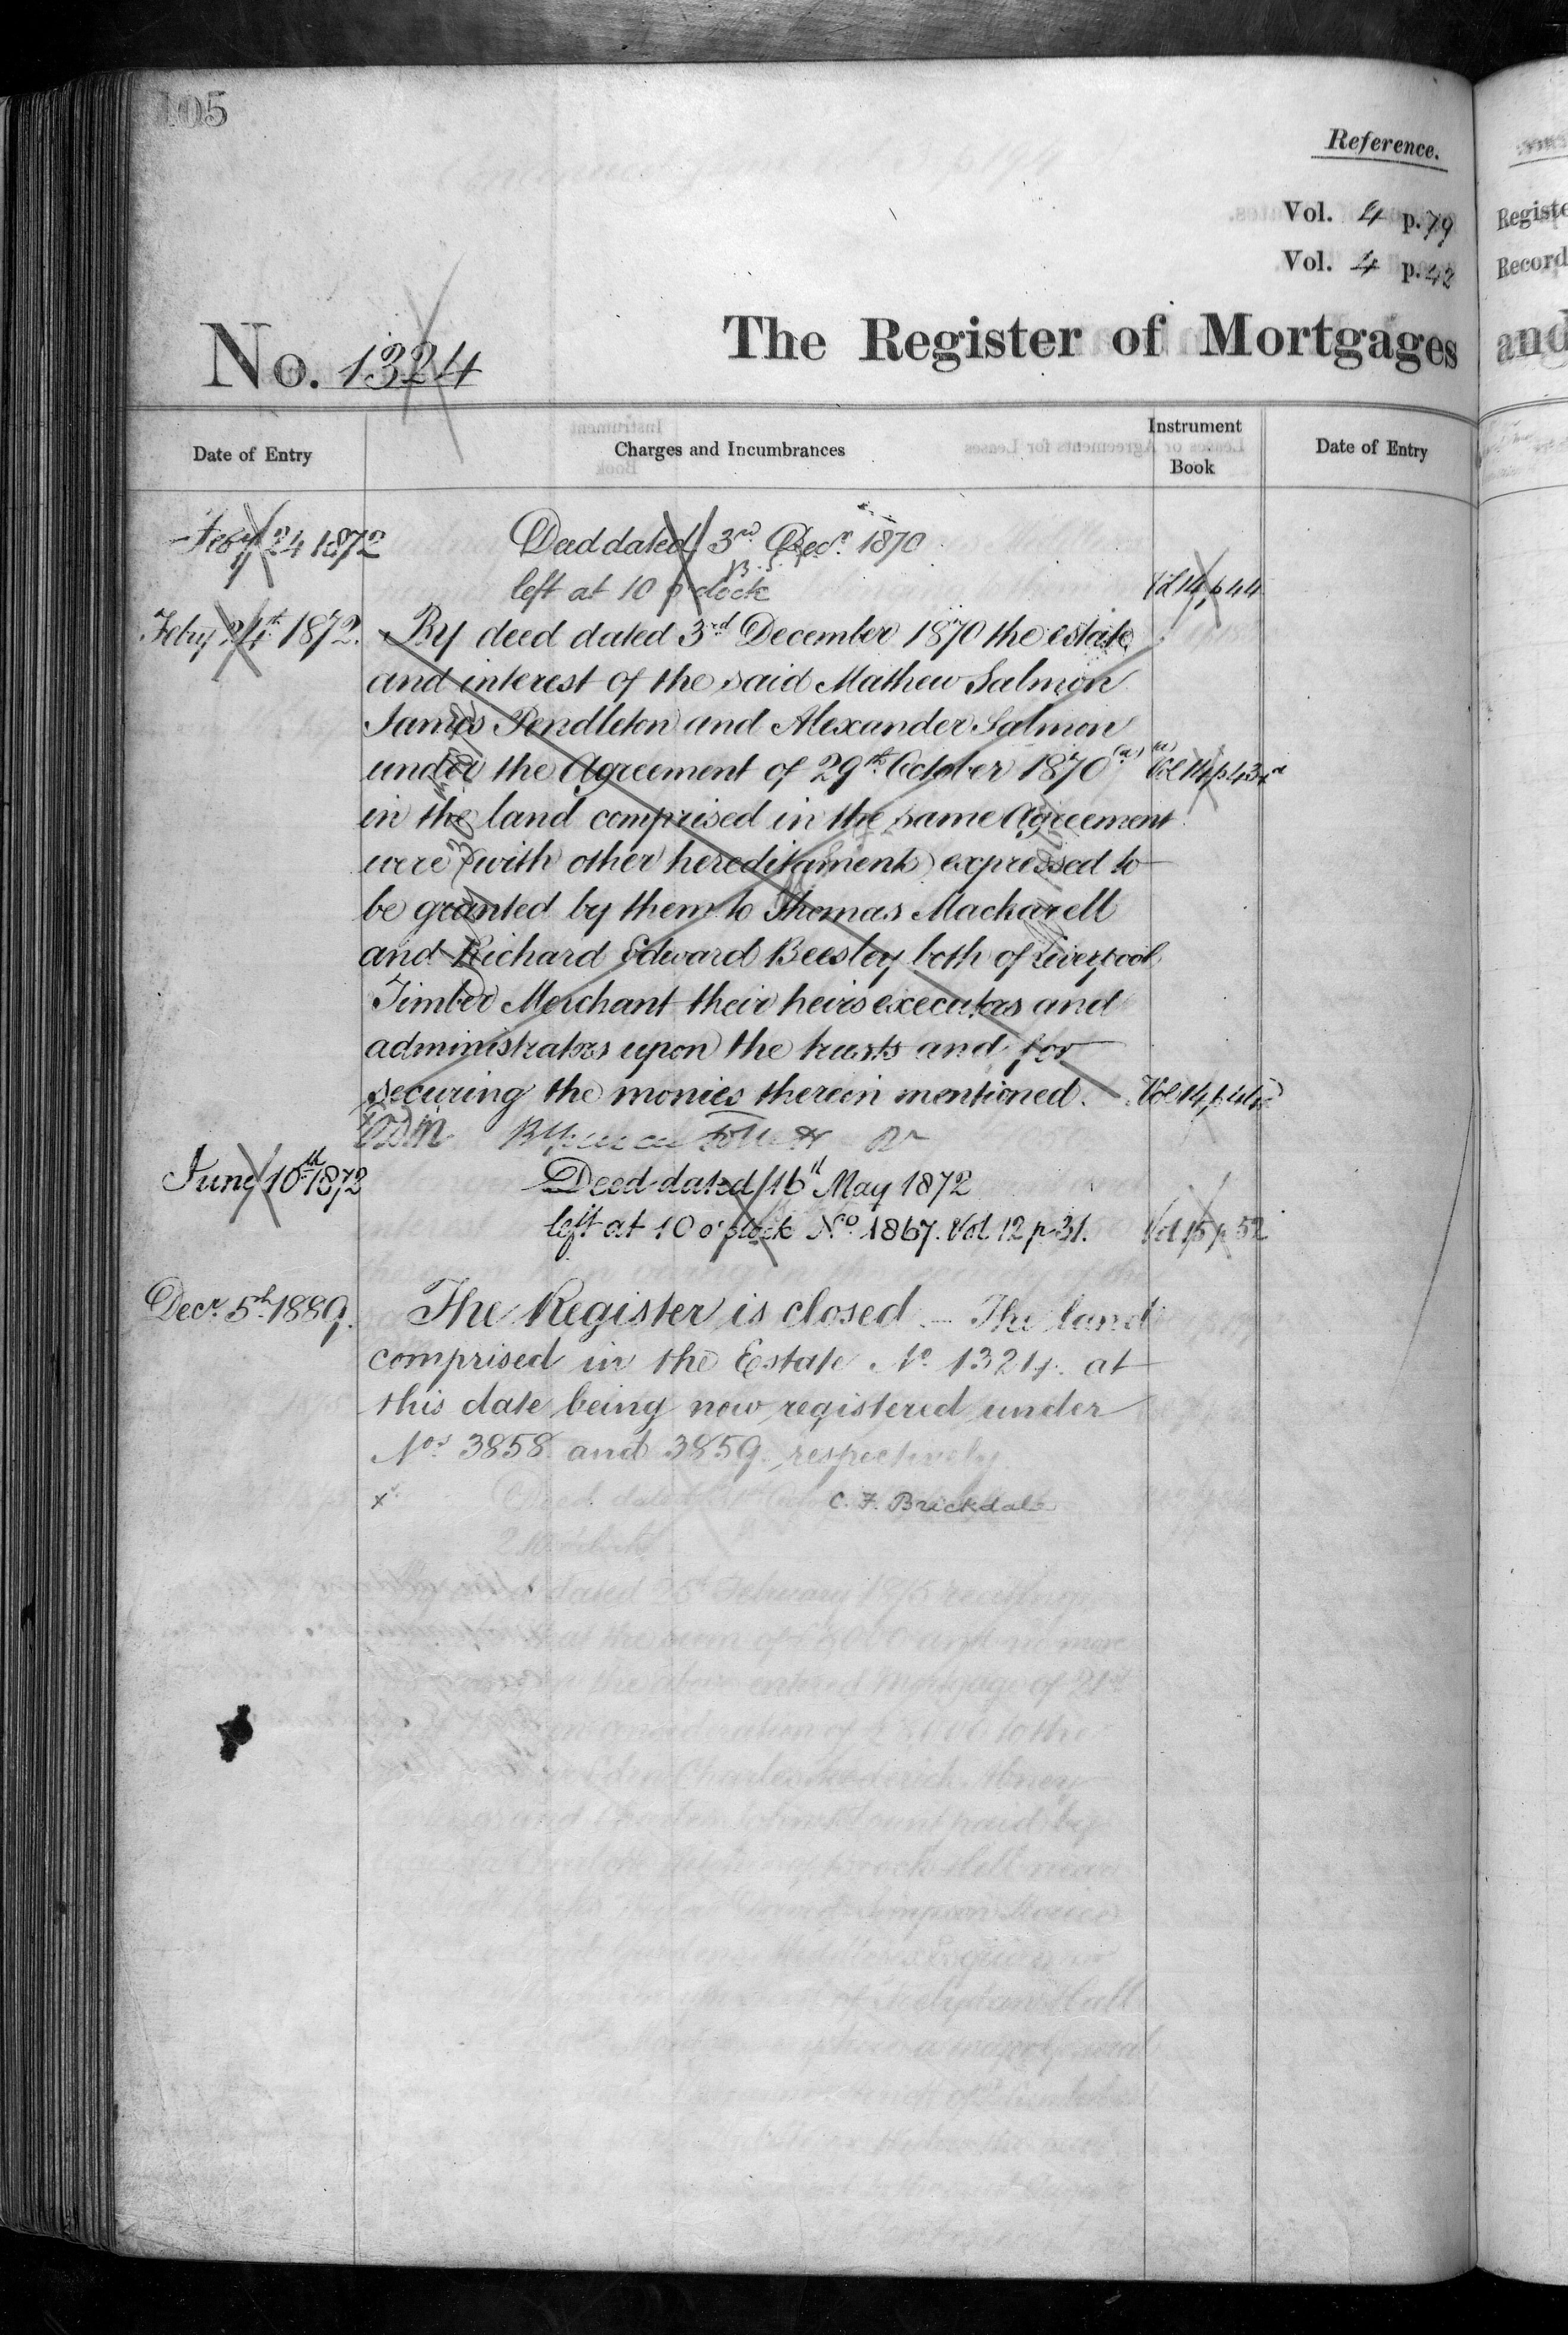 105
Reference.
Vol. 4 p. 79
Vol. 4 p. 42
No. 1324
The Register of Mortgages
Date of Entry
Charges and Incumbrances
Instrument Book
Date of Entry
Feby 24 1872
Deed dated 3rd Decr. 1870
left at 10 o'clock
Vol 14 p 44
Feby 24th 1872.
By deed dated 3rd December 1870 the estate
and interest of the said Mathew Salmon
James Pendleton and Alexander Salmon
under the Agreement of 29th October 1870 (a)
(a) Vol 14 p 43
in the land comprised in the same Agreement
were (with other hereditaments) expressed to
be granted by them to Thomas Mackarell
and Richard Edward Beesley both of Liverpool
Timber Merchant their heirs executors and
administrators upon the trusts and for
securing the monies therein mentioned.
Vol 14 p 44
June 10th 1872
Deed dated 16th May 1872
left at 10 o'clock No. 1867. Vol 12 p 31.
Vol 15 p 52
Decr. 5th 1889.
The Register is closed. – The land
comprised in the Estate No. 1324. at
this date being now registered under
Nos. 3858 and 3859 respectively.
C. F. Brickdale
Registe
Record
and